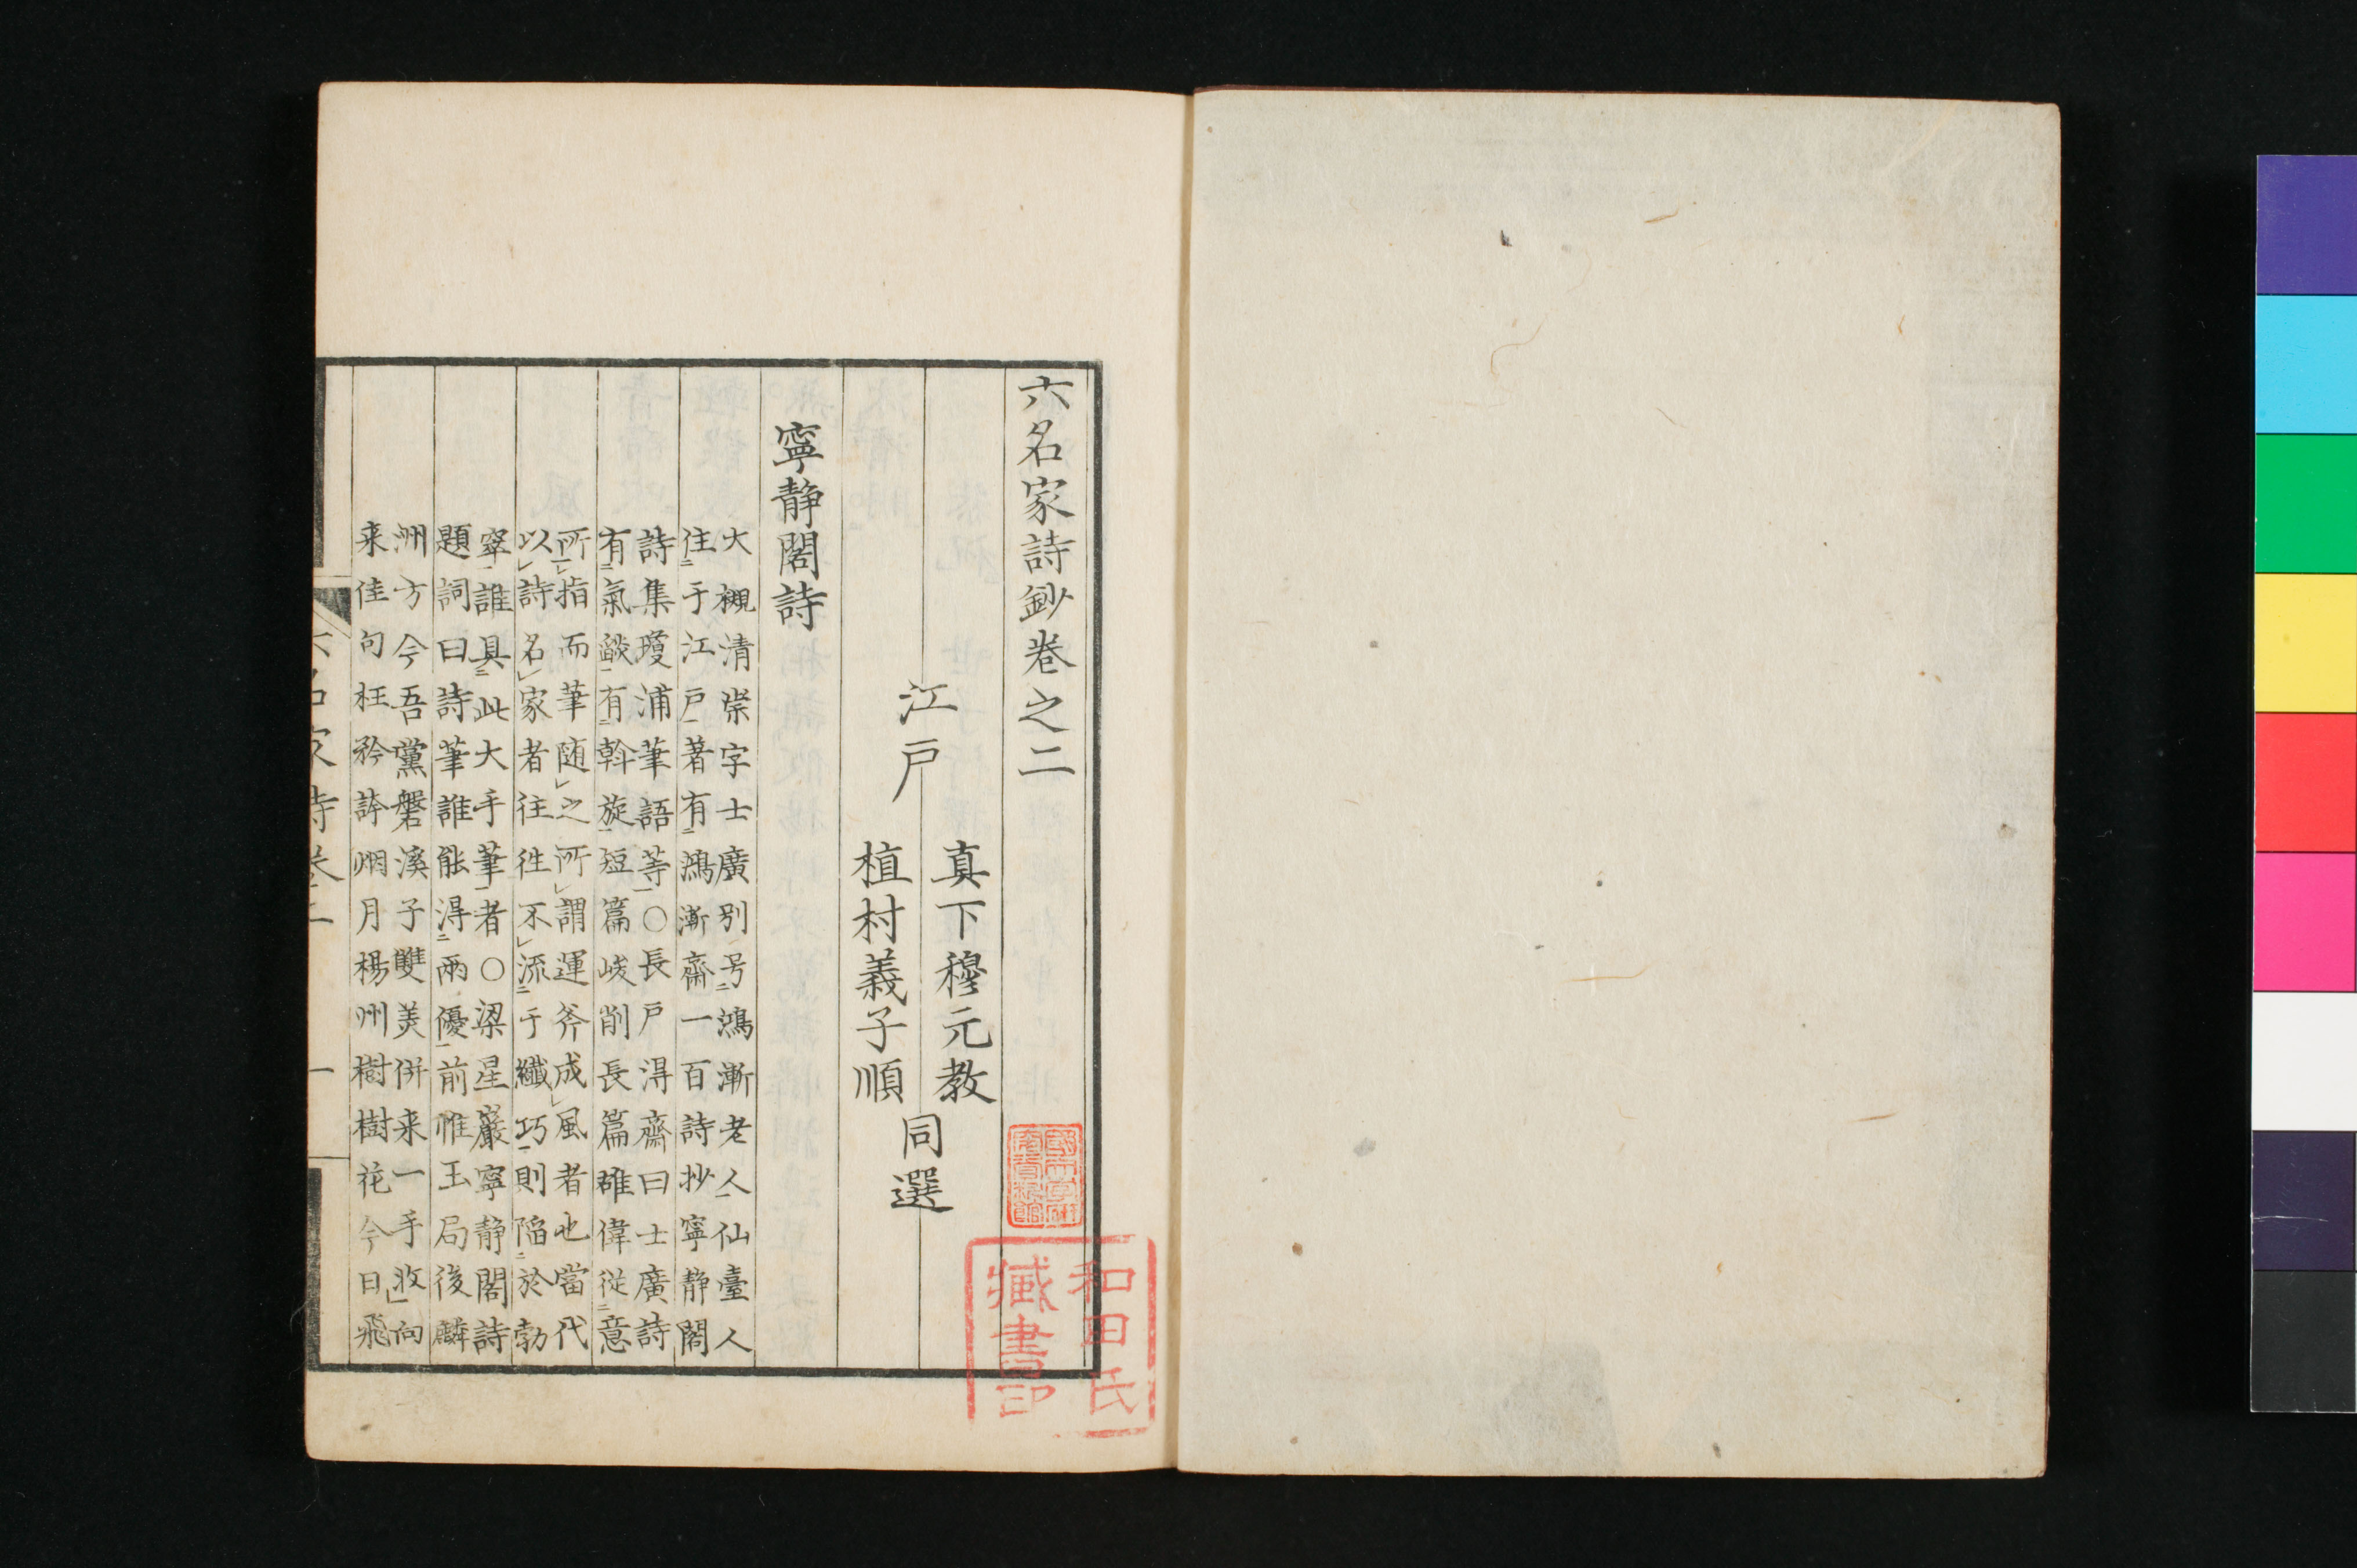 六名家詩鈔卷之二
江戸
真下穆元教
植村義子順
同選
寧静閣詩
大槻清崇字士廣別号鴻漸老人仙臺人
住于江戸著有鴻漸齋一百詩抄寧静閣
詩集瓊浦筆語等○長戸得齋曰士廣詩
有氣燄有斡旋短篇峻削長篇雄偉従意
所指而筆随之所謂運斧成風者也當代
以詩名家者往往不流于纖巧則陥於勃
窣誰具此大手筆者○梁星巖寧静閣詩
題詞曰詩筆誰能得兩優前惟玉局後麟
洲方今吾黨磐溪子雙美併来一手收向
来佳句枉矜誇烟月楊州樹樹花今日飛
六名家詩卷二
一
和田氏
藏書印